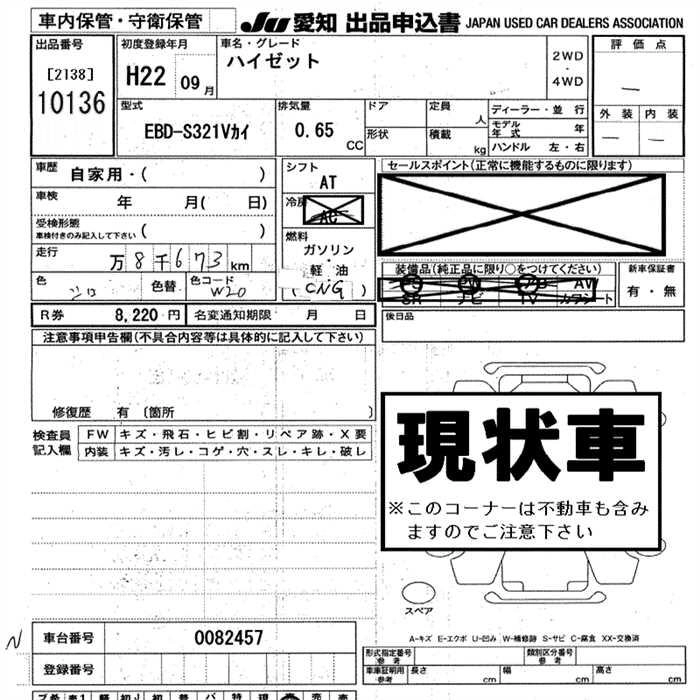 車内保管・守衛保管
JU 愛知 出品申込書 JAPAN USED CAR DEALERS ASSOCIATION
出品番号
[2138]
10136
初度登録年月
H22 09月
車名・グレード
ハイゼット
2WD
・
4WD
評価点
—
外装 内装
— —
型式
EBD-S321Vカイ
排気量
0.65 CC
ドア
形状
定員 人
積載 kg
ディーラー・並行
モデル年式 年
ハンドル 左・右
車歴
自家用・( )
車検
年 月( 日)
受検形態
車検付きのみ記入して下さい ( )
走行
万8千673km
色 シロ
色替
色コード
W20
シフト
AT
冷房
AC
燃料
ガソリン
・
軽油
(CNG)
セールスポイント(正常に機能するものに限ります)
装備品(純正品に限り○をつけてください)
PS PW AB AW
SR ナビ TV カワシート
新車保証書
有・無
後日品
R券 8,220円
名変通知期限 月 日
注意事項申告欄(不具合内容等は具体的に記入して下さい)
修復歴 有〔箇所 〕
検査員
記入欄
FW キズ・飛石・ヒビ割・リペア跡・X要
内装 キズ・汚レ・コゲ・穴・スレ・キレ・破レ
現状車
※このコーナーは不動車も含み
ますのでご注意下さい
スペア
A-キズ E-エクボ U-凹み W-補修跡 S-サビ C-腐食 XX-交換済
N
車台番号 0082457
登録番号
形式指定番号
参考
類別区分番号
参考
車庫証明用
参考
長さ cm 幅 cm 高さ cm